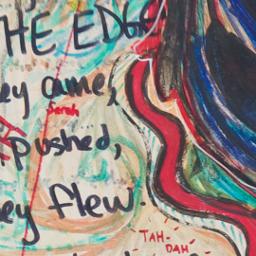 THE EDGE
ey came,
Sarah
pushed,
ey flew.
TAH-
DAH